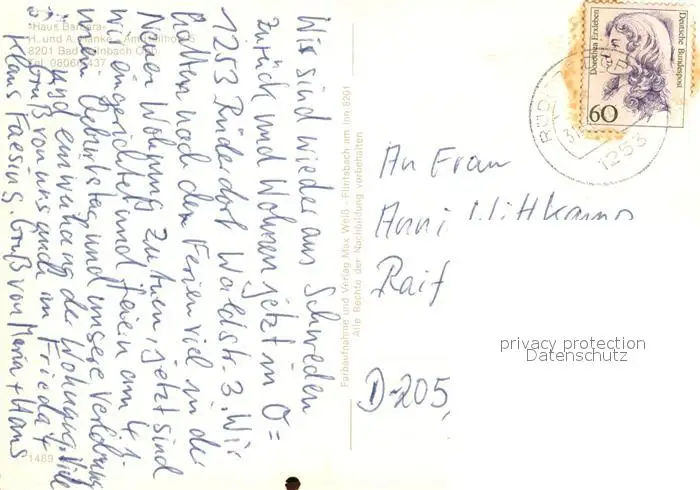 "Haus Barbara"
H. und A. Hanke
8201 Bad
Tel. 08066/437
Wir sind wieder aus Schweden
zurück und Wohnen jetzt in O=
1253 Rüdersdorf Waldstr. 3. Wir
hatten nach den Ferien viel in der
Neuen Wohnung zu tuen, jetzt sind
wir eingerichtet und feiern am 4.
mein Geburtstag und unsere Verlobung
und einweihung der Wohnung. Viele
Grüß von uns auch an Frieda +
Klaus Faesing. Gruß von Maria + Hans
1489
Farbaufnahme und Verlag Max Weiß · Flintsbach am Inn 8201
Alle Rechte der Nachbildung vorbehalten
Dorothea Erxleben
Deutsche Bundespost
60
1253
An Frau
Anni Wittkamp
Raif
D-205
privacy protection
Datenschutz